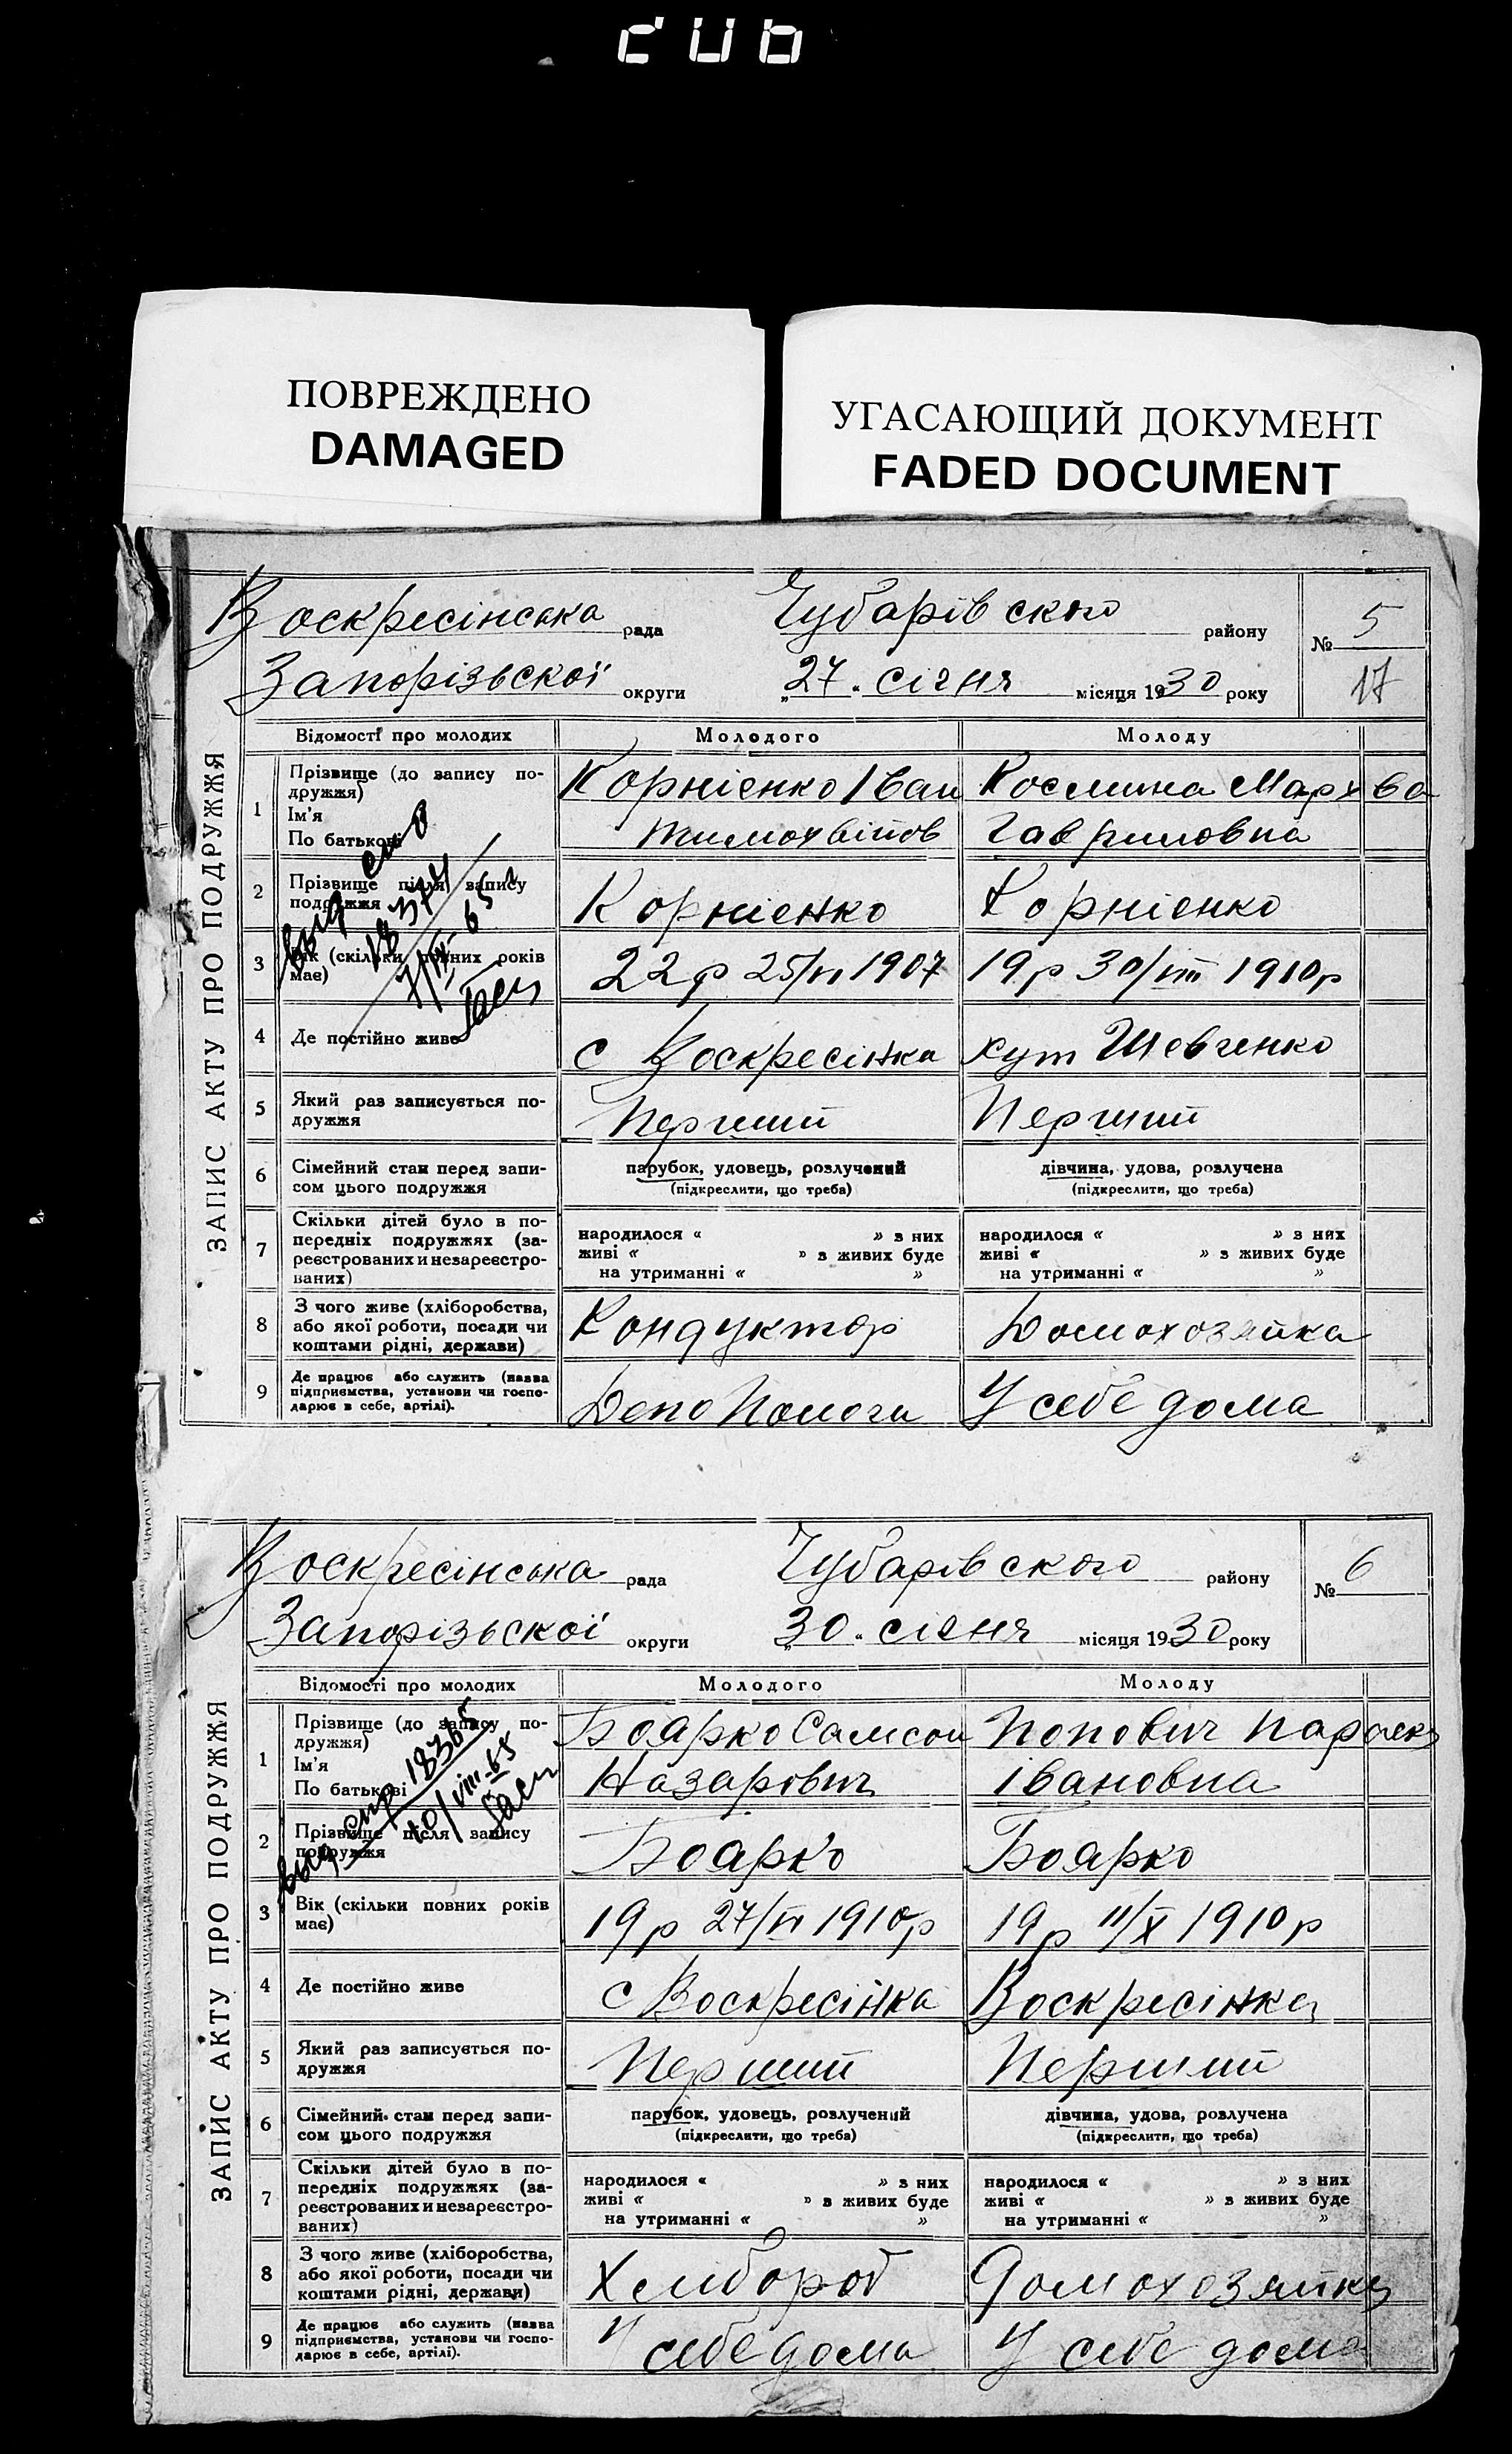 ПОВРЕЖДЕНО
DAMAGED
УГАСАЮЩИЙ ДОКУМЕНТ
FADED DOCUMENT
ЗАПИС АКТУ ПРО ПОДРУЖЖЯ
Воскресінська рада Чубарівського району № 5
Запорізьської округи „27„ січня місяця 1930 року 17
Відомості про молодих Молодого Молоду
1 Прізвище (до запису по-
дружжя)
Ім'я
По батькові
Корнієнко Іван
Тимохвіїов
Космина Мархва
Гавриловна
2 Прізвище після запису
подружжя
Корнієнко Корнієнко
3 Вік (скільки повних років
має)
22 р 25/VI 1907 19 р 30/VIII 1910 р
18374
4 Де постійно живе
с Воскресінка хут Шевченко
5 Який раз записується по-
дружжя
Перший Перший
6 Сімейний стан перед запи-
сом цього подружжя
парубок, удовець, розлучений
(підкреслити, що треба)
дівчина, удова, розлучена
(підкреслити, що треба)
7 Скільки дітей було в по-
передніх подружжях (за-
реєстрованих и незареєстро-
ваних)
народилося « » з них
живі « » з живих буде
на утриманні « »
народилося « » з них
живі « » з живих буде
на утриманні « »
8 З чого живе (хліборобства,
або якої роботи, посади чи
коштами рідні, держави)
Кондуктор Домохозяйка
9 Де працює або служить (назва
підприємства, установи чи госпо-
дарює в себе, артілі).
Депо Пологи У себе дома
ЗАПИС АКТУ ПРО ПОДРУЖЖЯ
Воскресінська рада Чубарівського району № 6
Запорізьскої округи „30„ січня місяця 1930 року
Відомості про молодих Молодого Молоду
1 Прізвище (до запису по-
дружжя)
Ім'я
По батькові
Боярко Самсон
Назарович
Попович Параска
івановна
вид спр 18365
10/VIII-65
2 Прізвище після запису
подружжя
Боярко Боярко
3 Вік (скільки повних років
має)
19 р 27/VI 1910 р 19 р 11/X 1910 р
4 Де постійно живе
с Воскресінка Воскресінка
5 Який раз записується по-
дружжя
Перший Перший
6 Сімейний стан перед запи-
сом цього подружжя
парубок, удовець, розлучений
(підкреслити, що треба)
дівчина, удова, розлучена
(підкреслити, що треба)
7 Скільки дітей було в по-
передніх подружжях (за-
реєстрованих и незареєстро-
ваних)
народилося « » з них
живі « » з живих буде
на утриманні « »
народилося « » з них
живі « » з живих буде
на утриманні « »
8 З чого живе (хліборобства,
або якої роботи, посади чи
коштами рідні, держави)
Хлибороб Домохозяйка
9 Де працює або служить (назва
підприємства, установи чи госпо-
дарює в себе, артілі).
У себе дома У себе дома